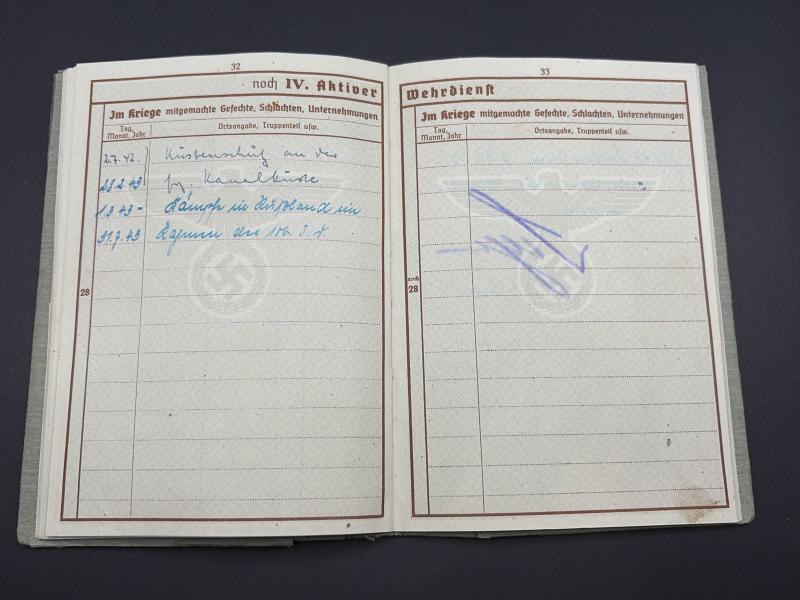 32
noch IV. Aktiver
Im Kriege mitgemachte Gefechte, Schlachten, Unternehmungen
Tag, Monat, Jahr
Ortsangabe, Truppenteil usw.
2.7.42. Küstenschutz an der
28.2.43 frz. Kanalküste
1.3.43 - Kämpfe in Rußland im
31.7.43 Rahmen der 106. I. D.
28
33
Wehrdienst
Im Kriege mitgemachte Gefechte, Schlachten, Unternehmungen
Tag, Monat, Jahr
Ortsangabe, Truppenteil usw.
noch
28